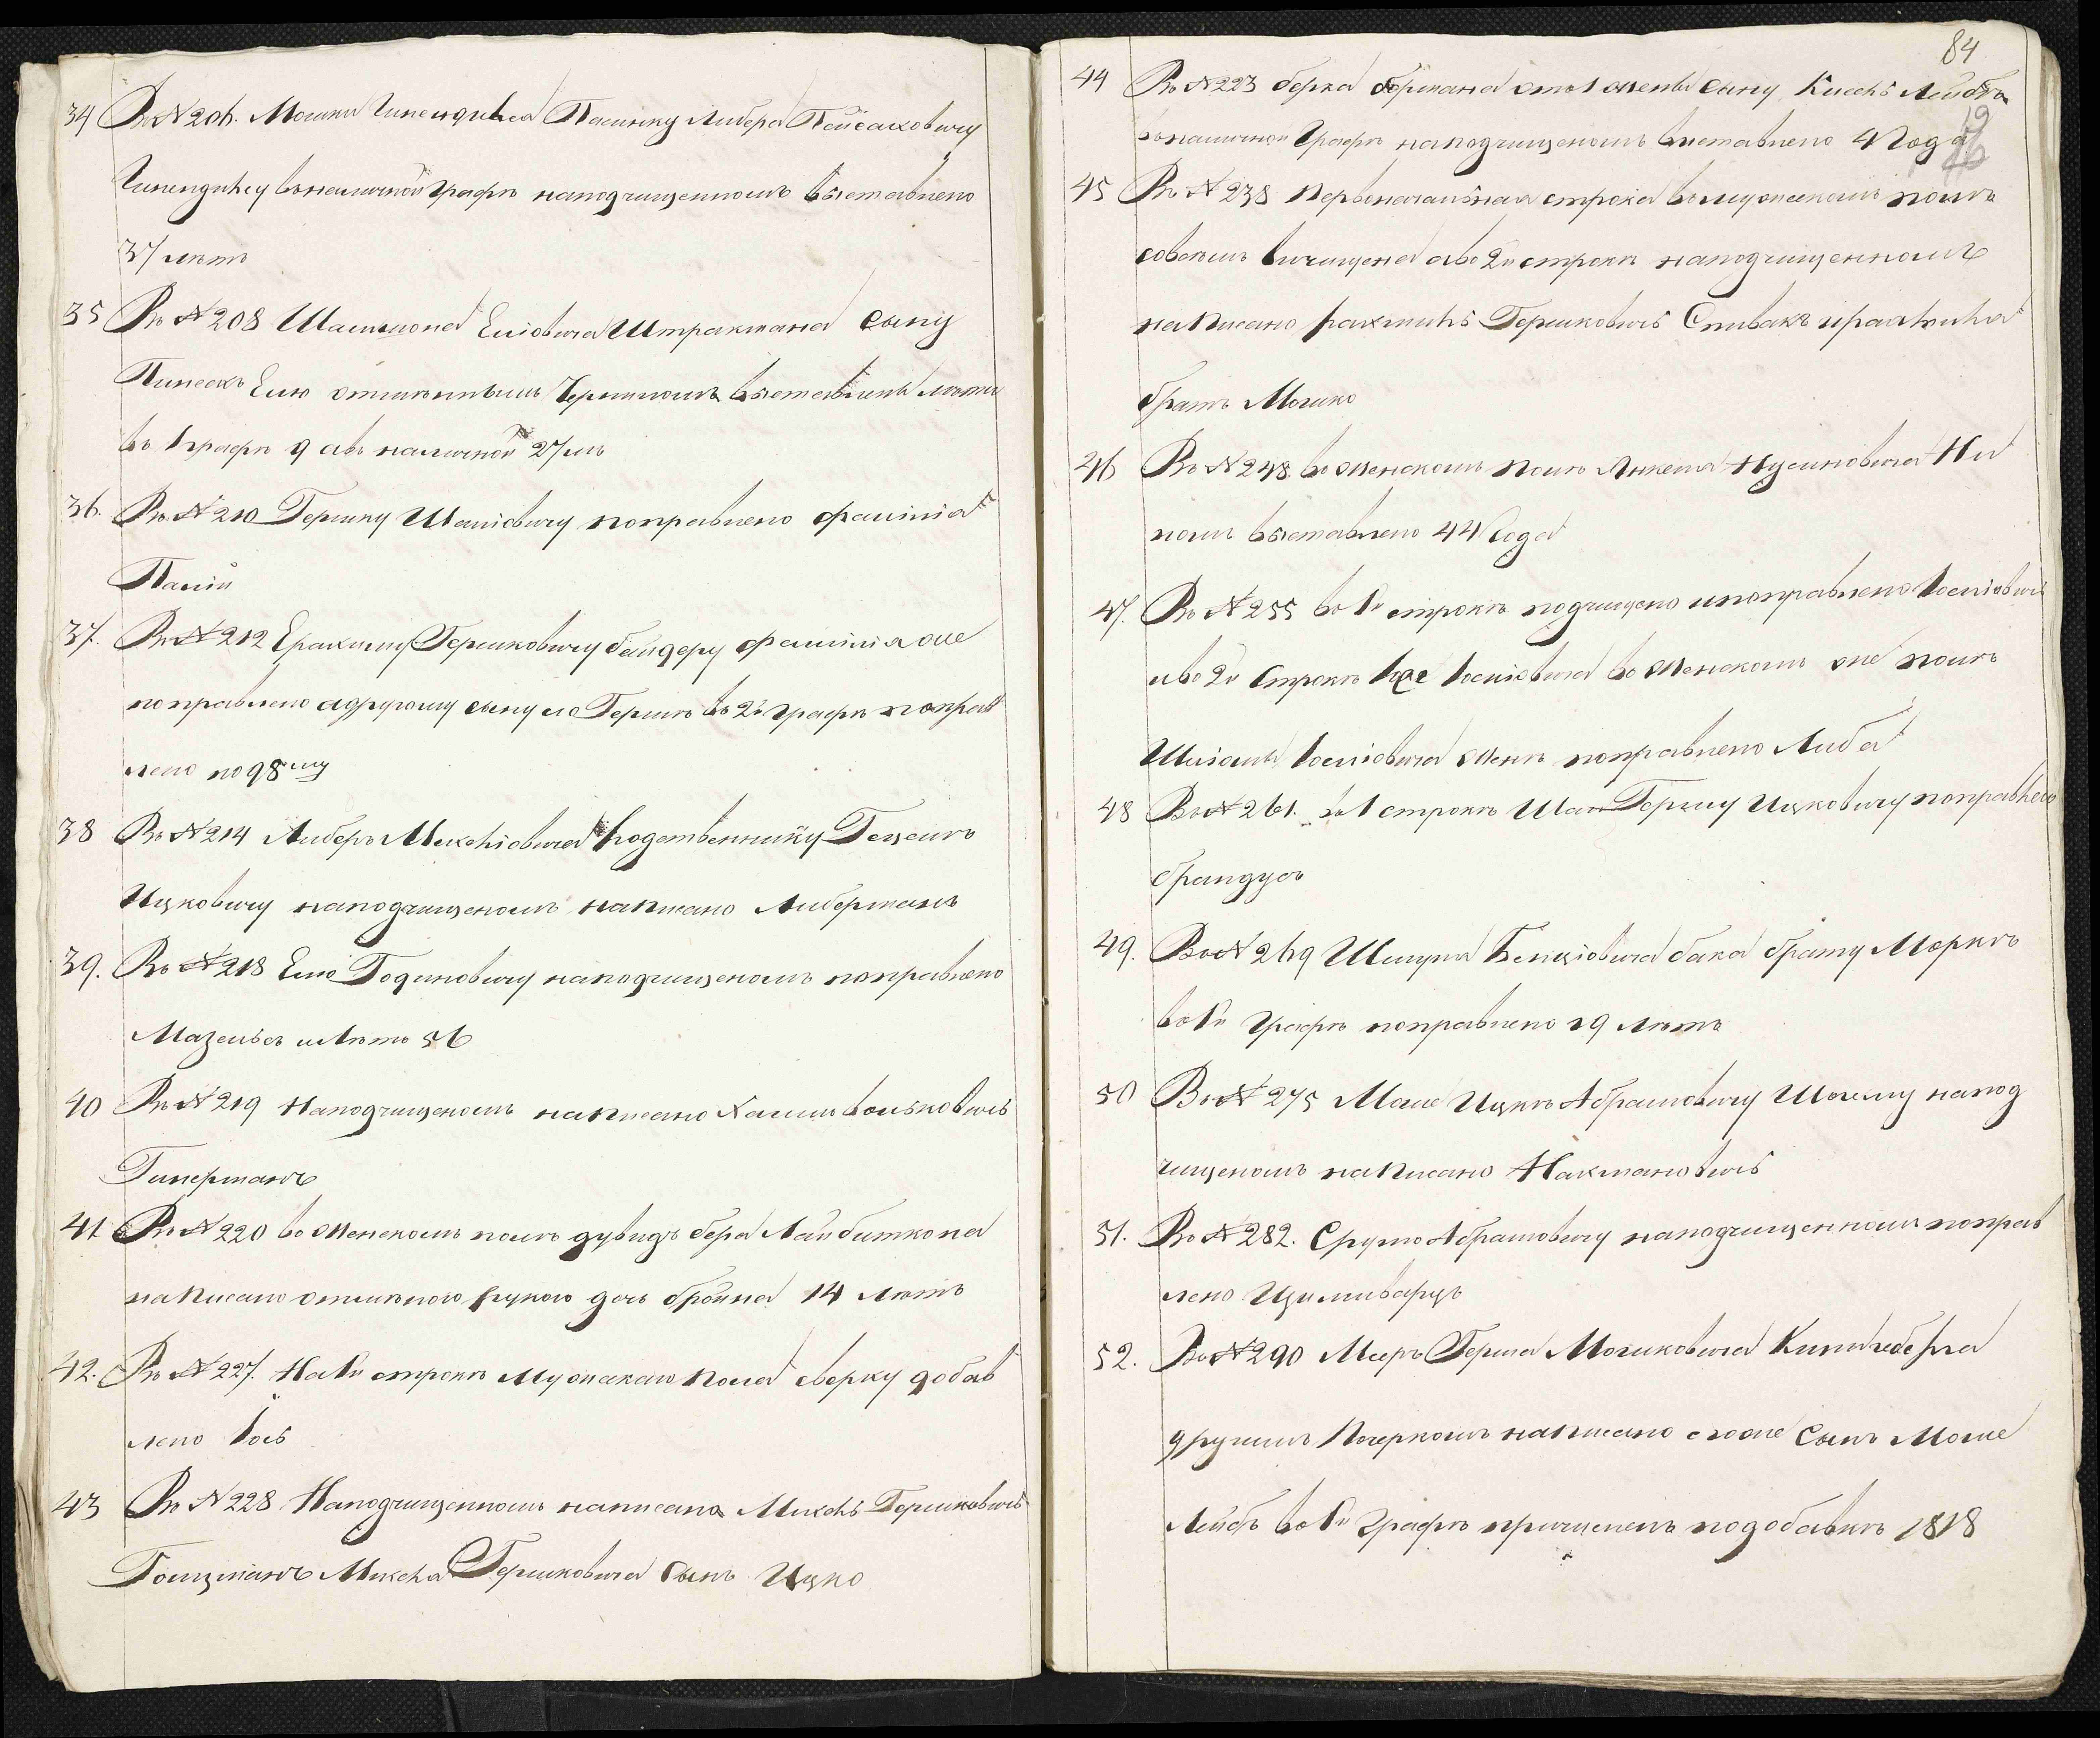 34 Въ №206. Мошки Чипендика Пасынку Либера Пейсаховичу
Чипендику въ наличной графѣ на подчищенномъ выставлено
37 лѣтъ
35 Въ №208 Шаишона Еліовича Штракмана сыну
Пинсехъ Елю отмѣннымъ Чернилом выставлены лѣты
въ 1 графѣ 9 а въ наличной 27 лѣ
36. Въ №210 Гершку Шаліовичу поправлено фамилія
Палій
37. Въ №212 Ерахиму Гершковичу Байдеру фамилія же
поправлено а другому сыну его Гершѣ въ 2й графѣ поправ
лено по 98му
38 Въ №214 Либеръ Михеліовича родственнику Гецелѣ
Ицковичу на подчищеномъ написано Либерманъ
39. Въ №218 Елю Годиковичу на подчищеномъ поправлено
Мазельсъ и лѣтъ 56
40 Въ №219 На подчищеномъ написано Хаимъ Вольковичь
Гиперманъ
41 Въ №220 въ женскомъ полѣ Дувидъ Бера Лайбишкона
написано отмѣною рукою дочь Бройна 14 лѣтъ
42. Въ №227. На 1й строкѣ Мужскаго пола сверху добав
лено Іось
43 Въ №228 На подчищенномъ написано Михель Гершковичь
Гольцманъ Михеля Гершковича Сынъ Ицко
84
44 Въ №223 Берка Бормана отъ 1 жены сыну Кисель Лейбѣ
въ наличной Графѣ на подчищеномъ выставлено 4 Года
19
45 Въ №238 Первоначальная строка въ мужескомъ полѣ
совсемъ вичищена а во 2й строкѣ на подчищенномъ
написано Рахмиль Гершковичь Спивакъ и Рахмиля
братъ Мошко
46 Въ №248. въ женскомъ полѣ Янкеля Нусиновича Ни
полѣ выставлено 44 Года
47. Въ №255 въ 1й строкѣ подчищено и поправлено Іоеліовичь
и во 2й строкѣ Іоеліовича въ Женскомъ же полѣ
Шліомы Іоеліовича Женѣ поправлено Либа
48 Въ №261. въ 1 строкѣ Шая Гершу Ицковичу поправлено
Брандусъ
49. Въ №269 Шмуля Бенціовича Бака брату Моркѣ
въ 1й Графѣ поправлено 19 лѣтъ
50 Въ №275 Моше Ицкѣ Абрамовичу Шохему на под
чищеномъ написано Нахмановичь
51. Въ №282. Срулю Абрамовичу на подчищенномъ поправ
лено Цимлшварцъ
52. Въ №290 Мееръ Герша Мошковича
другимъ Почеркомъ написано его же Сынъ Моше
Лейбъ въ 1й Графѣ причисленъ по добавкѣ 1818